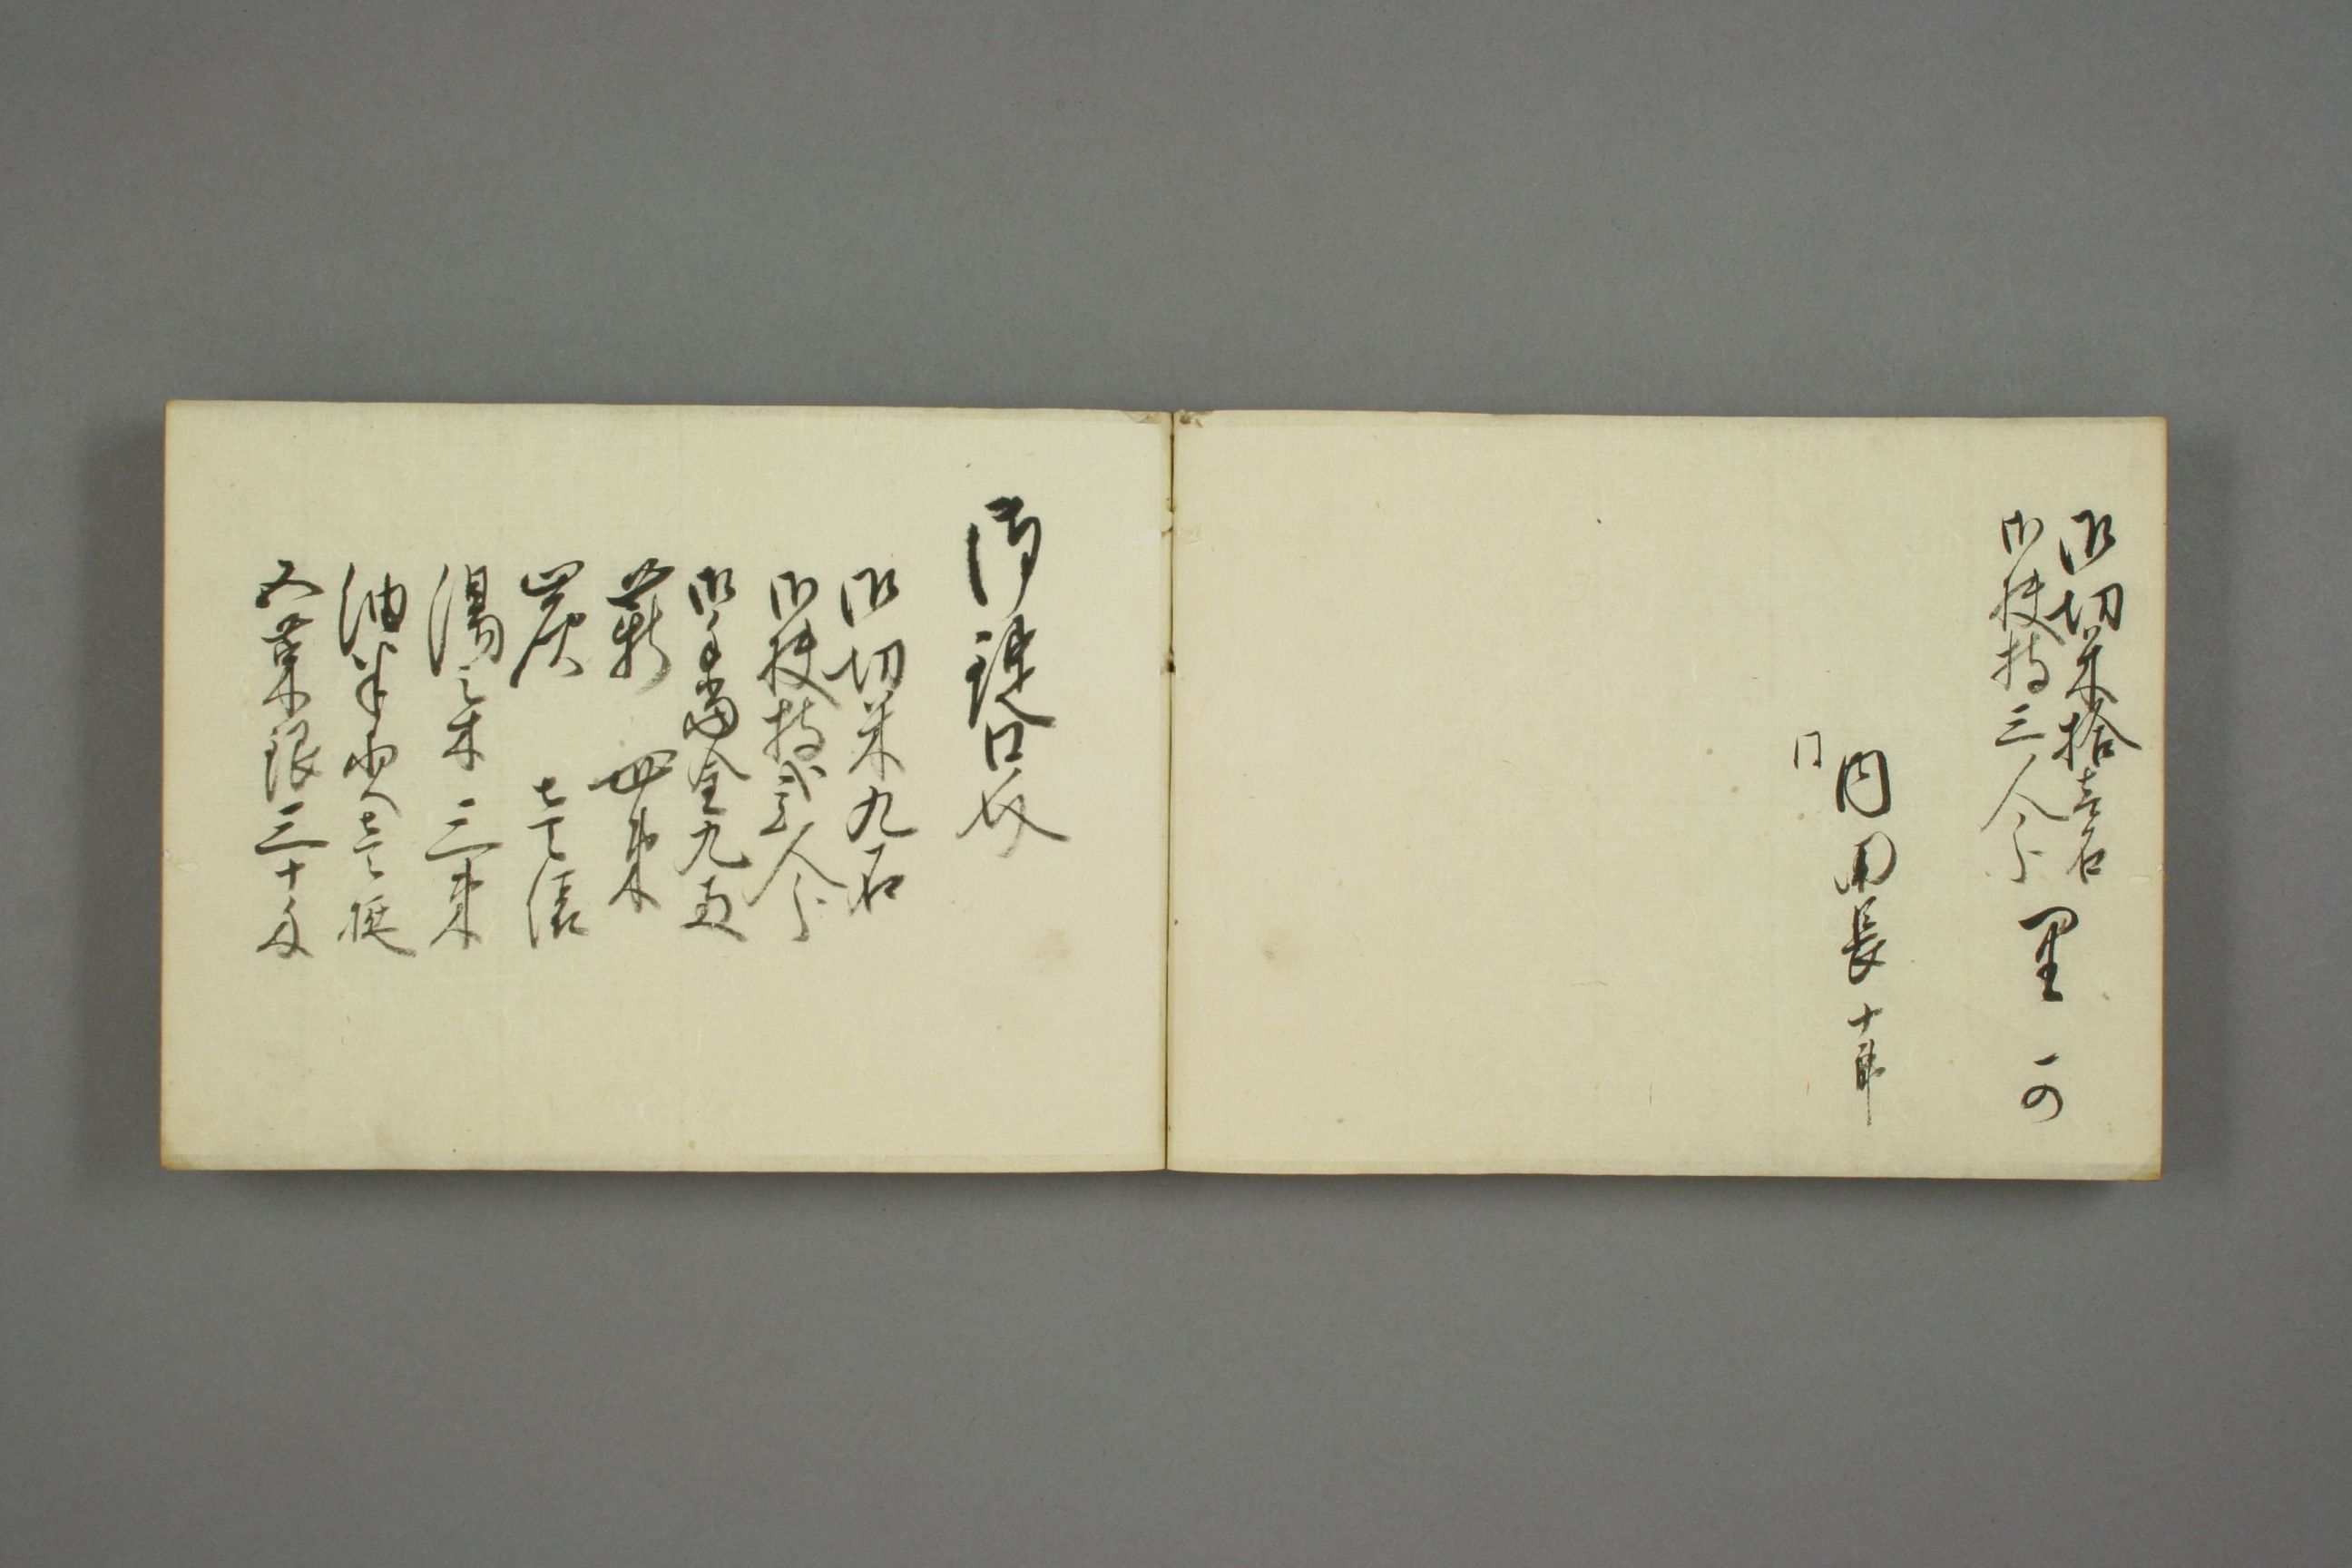 御切米拾壱石
御扶持三人分
里一の
内田長十郎
同
御錠口衆
御切米九石
御扶持弐人分
御手当金九両
薪 四束
炭 七俵
湯之木 三束
油半夜壱挺
五菜銀三十匁